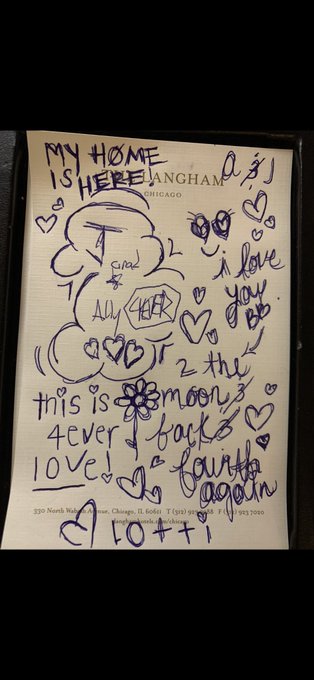 MY HØME
IS HERE!
THE LANGHAM
CHICAGO
a & J
J
and
2
Ally 4EVER
i love
you
2 the
moon &
back &
fourth
again
this is
4ever
love!
330 North Wabash Avenue, Chicago, IL 60611 T (312) 923 9988 F (312) 923 7020
langhamhotels.com/chicago
lotti